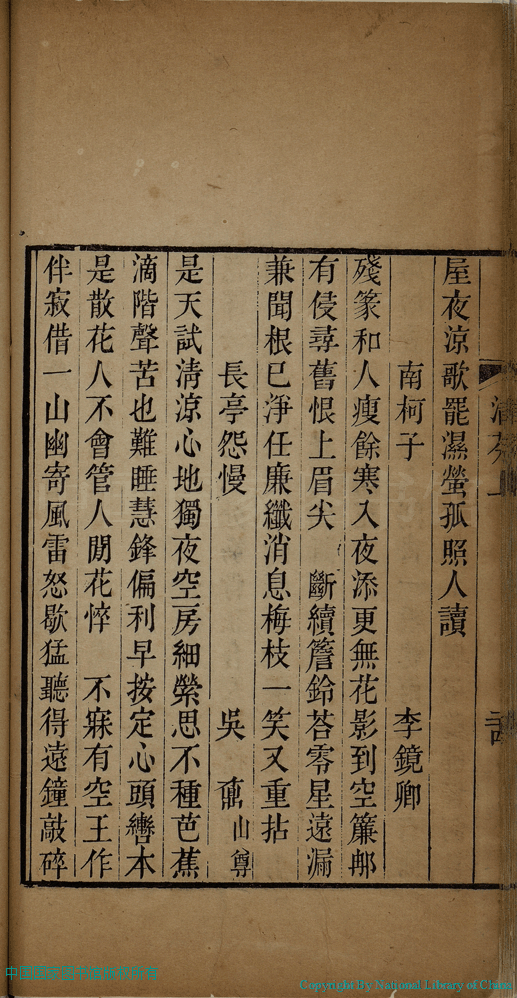 屋夜涼歌罷濕螢孤照人讀
南柯子 李鏡卿
殘篆和人瘦餘寒入夜添更無花影到空簾
有侵尋舊恨上眉尖 斷續簷鈴荅零星遠漏
兼聞根已淨任廉纖消息梅枝一笑又重拈
長亭怨慢 吳 山尊
是天試淸涼心地獨夜空房細縈思不種芭蕉
滴階聲苦也難睡慧鋒偏利早按定心頭轡本
是散花人不會管人閒花悴 不寐有空王作
伴寂借一山幽寄風雷怒歇猛聽得遠鐘敲碎
Copyright By National Library of China